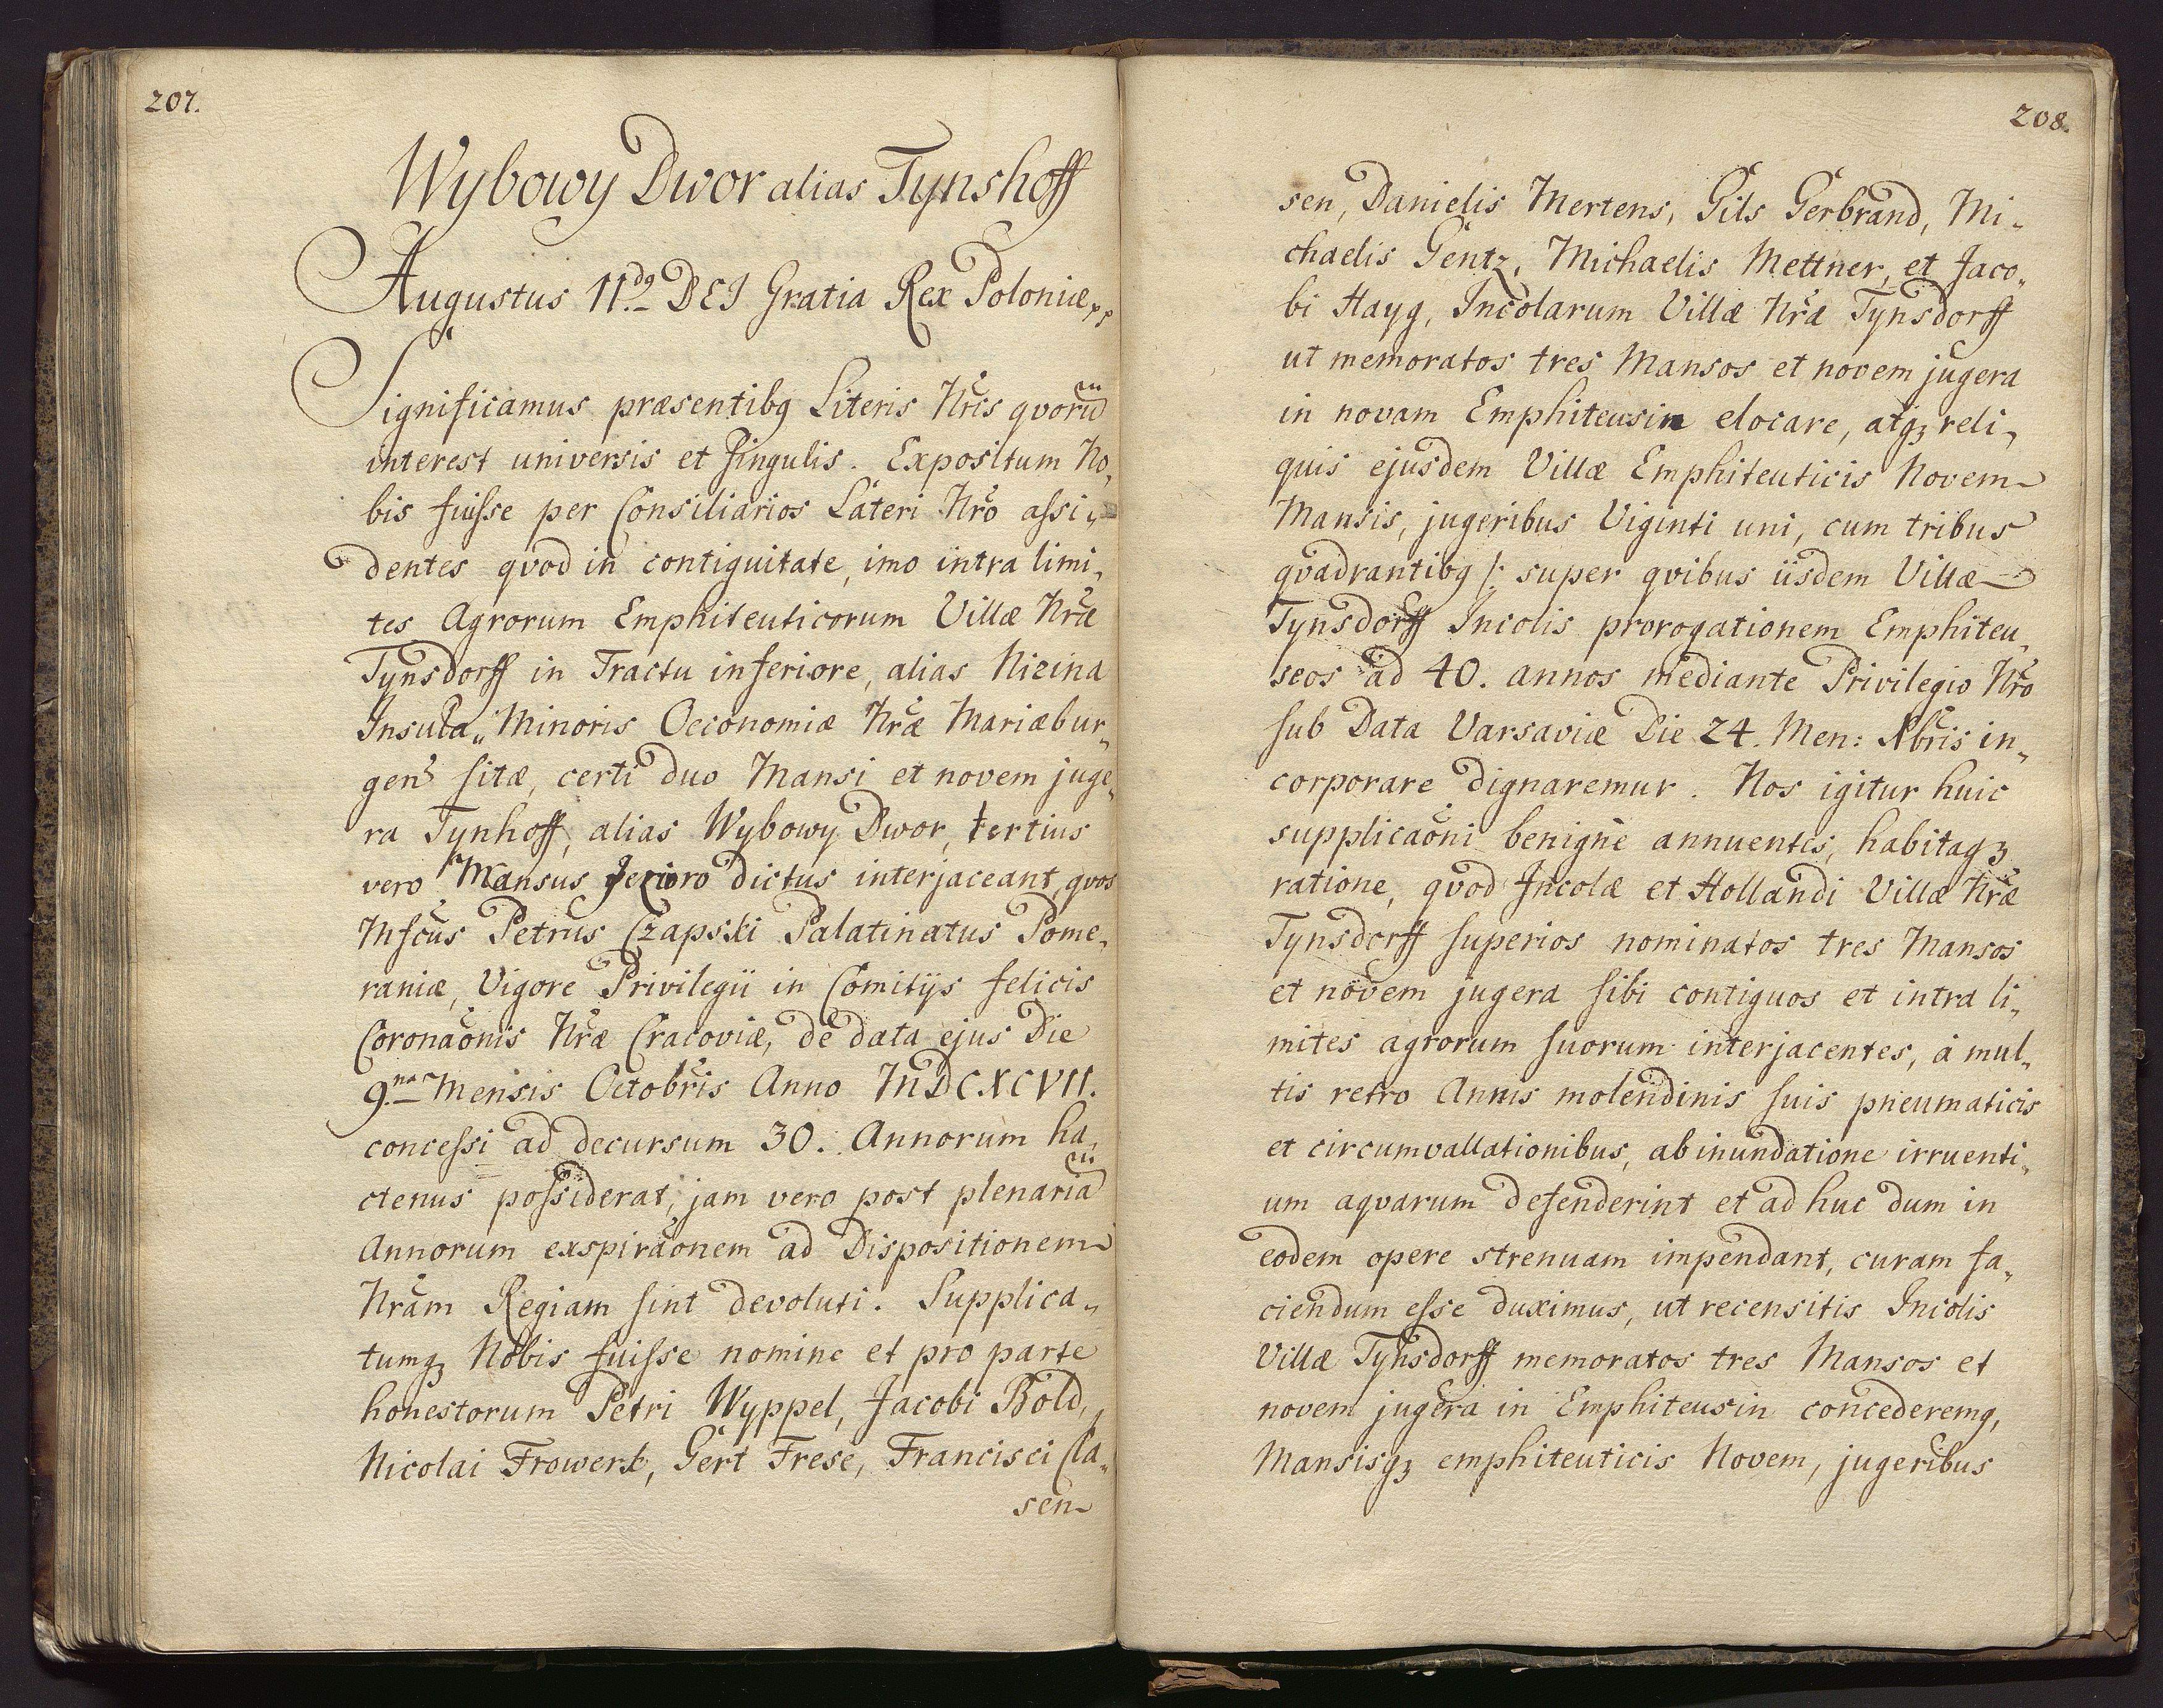 207.
Wybowy Dwor alias Tynshoff
Augustus II.dq DEI Gratia Rex Poloniæ pp
Significamus præsentibq Literis Nris qvorũ
interest universis et singulis. Expositum No„
bis fuisse per Consiliarios Lateri Nro assi„
dentes qvod in contiguitate, imo intra limi„
tes Agrorum Emphiteuticorum Villæ Nræ
Tynsdorff in Tractu inferiore, alias Nizina
Insula„ Minoris Oeconomiæ Nræ Mariæbur„
gen sitæ, certi duo Mansi et novem juge„
ra Tynhoff, alias Wybowy Dwor, tertius
vero Mansus Jezioro dictus interjaceant, qvos
Mfcus Petrus Czapski Palatinatus Pome„
raniæ, Vigore Privilegii in Comitijs felicis
Coronaonis Nræ Cracoviæ, de data ejus Die
9.na Mensis Octobris Anno MDCXCVII.
concessi ad decursum 30. Annorum ha„
ctenus possiderat, jam vero post plenariã
Annorum exspiraonem ad Dispositionem
Nram Regiam sint devoluti. Supplica„
tumqz Nobis fuisse nomine et pro parte
honestorum Petri Wyppel, Jacobi Bold,
Nicolai Frowerk, Gert Frese, Francisci Cla„
sen
208.
sen, Danielis Mertens, Gils Gerbrand, Mi„
chaelis Gentz, Michaelis Mettner, et Jaco„
bi Hayg, Incolarum Villæ Nræ Tynsdorff
ut memoratos tres Mansos et novem jugera
in novam Emphiteusin elocare, atqz reli„
quis ejusdem Villæ Emphiteuticis Novem
Mansis, jugeribus Viginti uni, cum tribus
qvadrantibq /: super qvibus iisdem Villæ
Tynsdorff Incolis prorogationem Emphiteu„
seos ad 40. annos mediante Privilegio Nro
sub Data Varsaviæ Die 24. Men: Xbris in„
corporare dignaremur. Nos igitur huic
supplicaoni benigne annuentes, habitaqz
ratione, qvod Incolæ et Hollandi Villæ Nræ
Tynsdorff superios nominatos tres Mansos
et novem jugera sibi contiguos et intra li„
mites agrorum suorum interjacentes, à mul„
tis retro Annis molendinis suis pneumaticis
et circumvallationibus, ab inundatione irruenti„
um aqvarum defenderint et ad huc dum in
eodem opere strenuam impendant, curam fa„
ciendum esse duximus, ut recensitis Incolis
Villæ Tynsdorff memoratos tres Mansos et
novem jugera in Emphiteusin concederemq,
Mansisqz emphiteuticis Novem, jugeribus